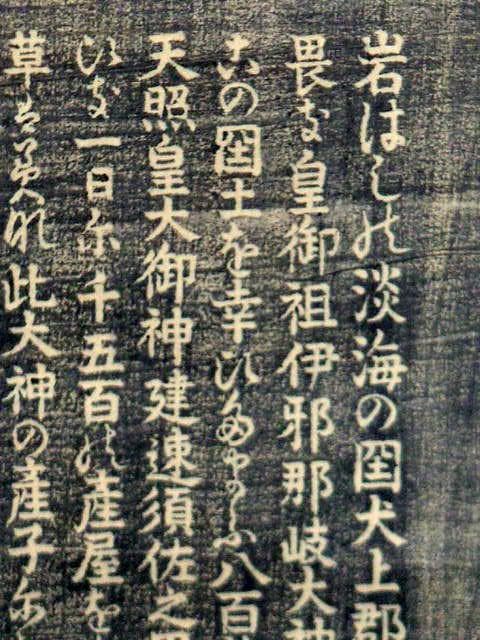 岩はしの淡海の国犬上郡
畏き皇御祖伊邪那岐大神
この国土を幸ひたまふ八百
天照皇大御神建速須佐之男
ひき一日に千五百の産屋を
草 此大神の産子